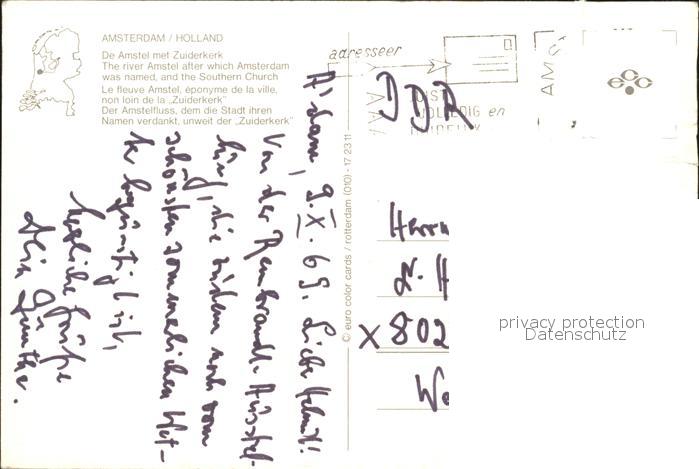 AMSTERDAM / HOLLAND
De Amstel met Zuiderkerk
The river Amstel after which Amsterdam
was named, and the Southern Church
Le fleuve Amstel, éponyme de la ville,
non loin de la „Zuiderkerk"
Der Amstelfluss, dem die Stadt ihren
Namen verdankt, unweit der „Zuiderkerk"
adresseer
JUIST
VOLLEDIG en
DUIDELIJK
AM
A'dam, 9.X.69. Lieber Helmut!
Von der Rembrandt-Ausstel-
lung, die zudem noch vom
schönsten sommerlichen Wet-
ter begünstigt ist,
herzliche Grüße
Dein Günther.
© euro color cards / rotterdam (010) - 17 23 11
DDR
Herrn
H
X 802
privacy protection
Datenschutz